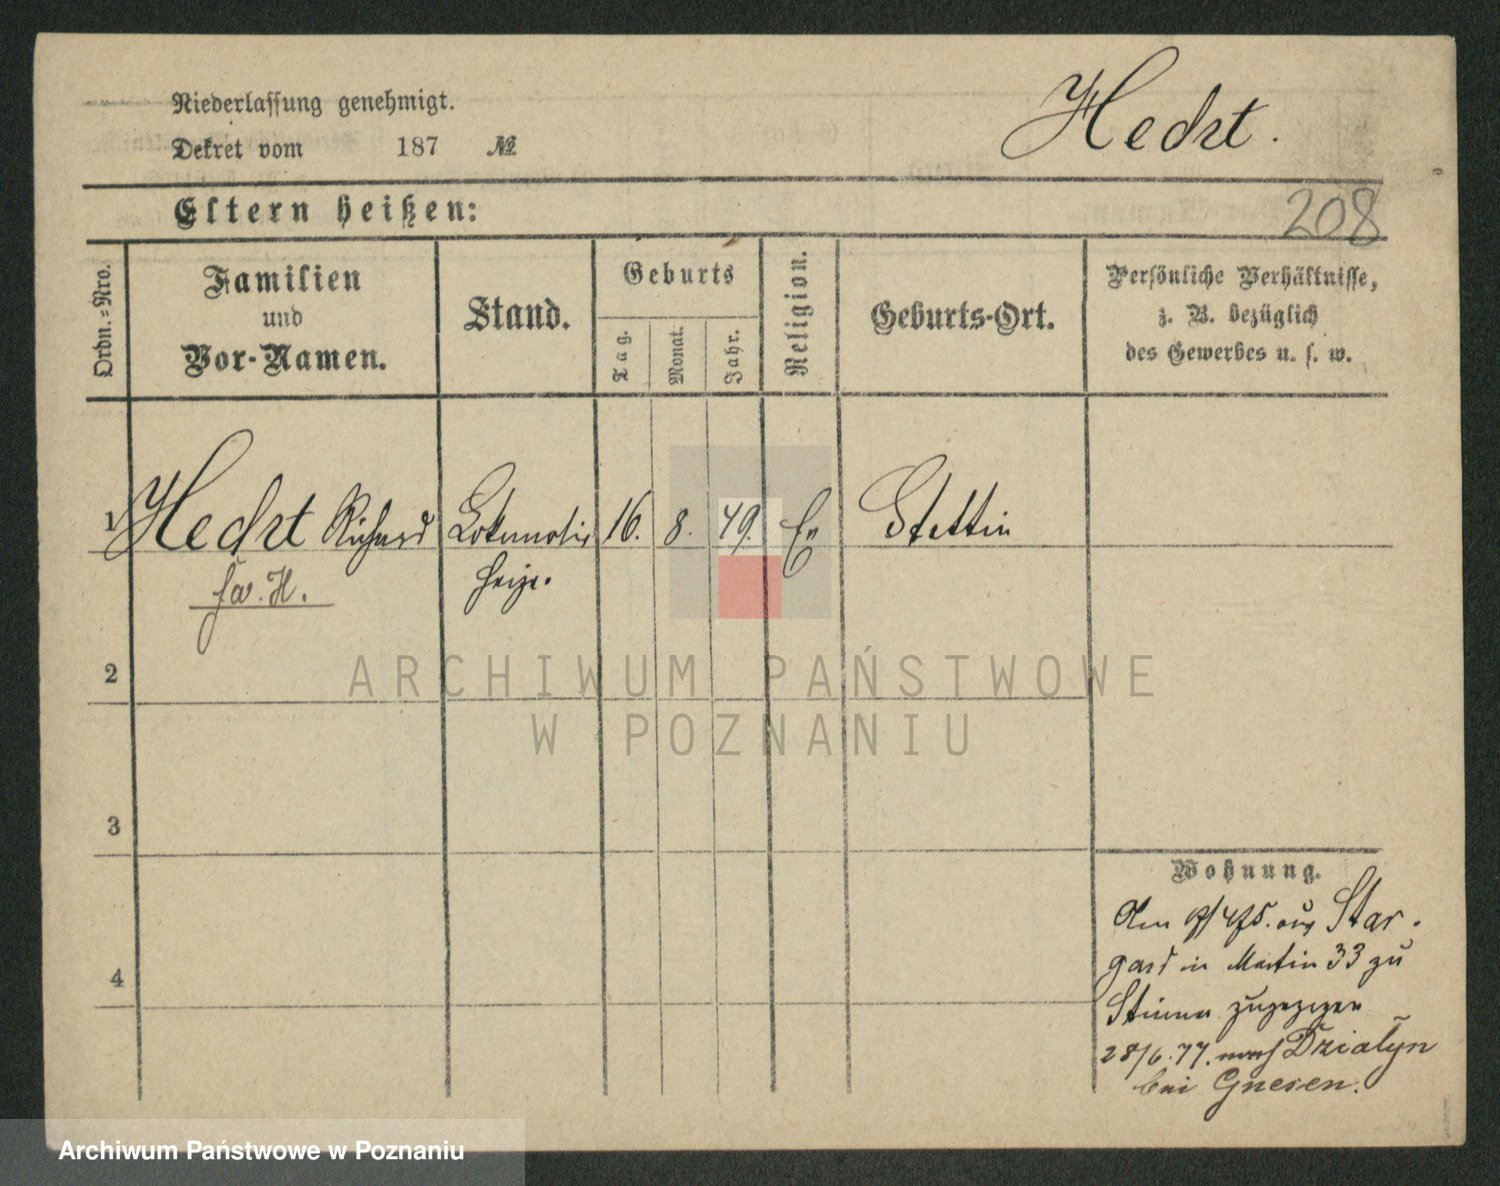 Niederlassung genehmigt.
Dekret vom 187 №
Hedrt.
208
Eltern heißen:
Ordn.=Nro.
Familien
und
Vor-Namen.
Stand.
Geburts
Tag.
Monat.
Jahr.
Religion.
Geburts-Ort.
Persönliche Verhältnisse,
z. B. bezüglich
des Gewerbes u. s. w.
1 Hedrt Richard Lokomotiv 16. 8. 49. Ev Stettin
heizer.
2
3
4
ARCHIWUM PAŃSTWOWE
W POZNANIU
Wohnung.
Am aus Star-
gard in Martin 33 zu
zugezogen
28/6.77. nach Dzialyn
bei Gnesen.
Archiwum Państwowe w Poznaniu